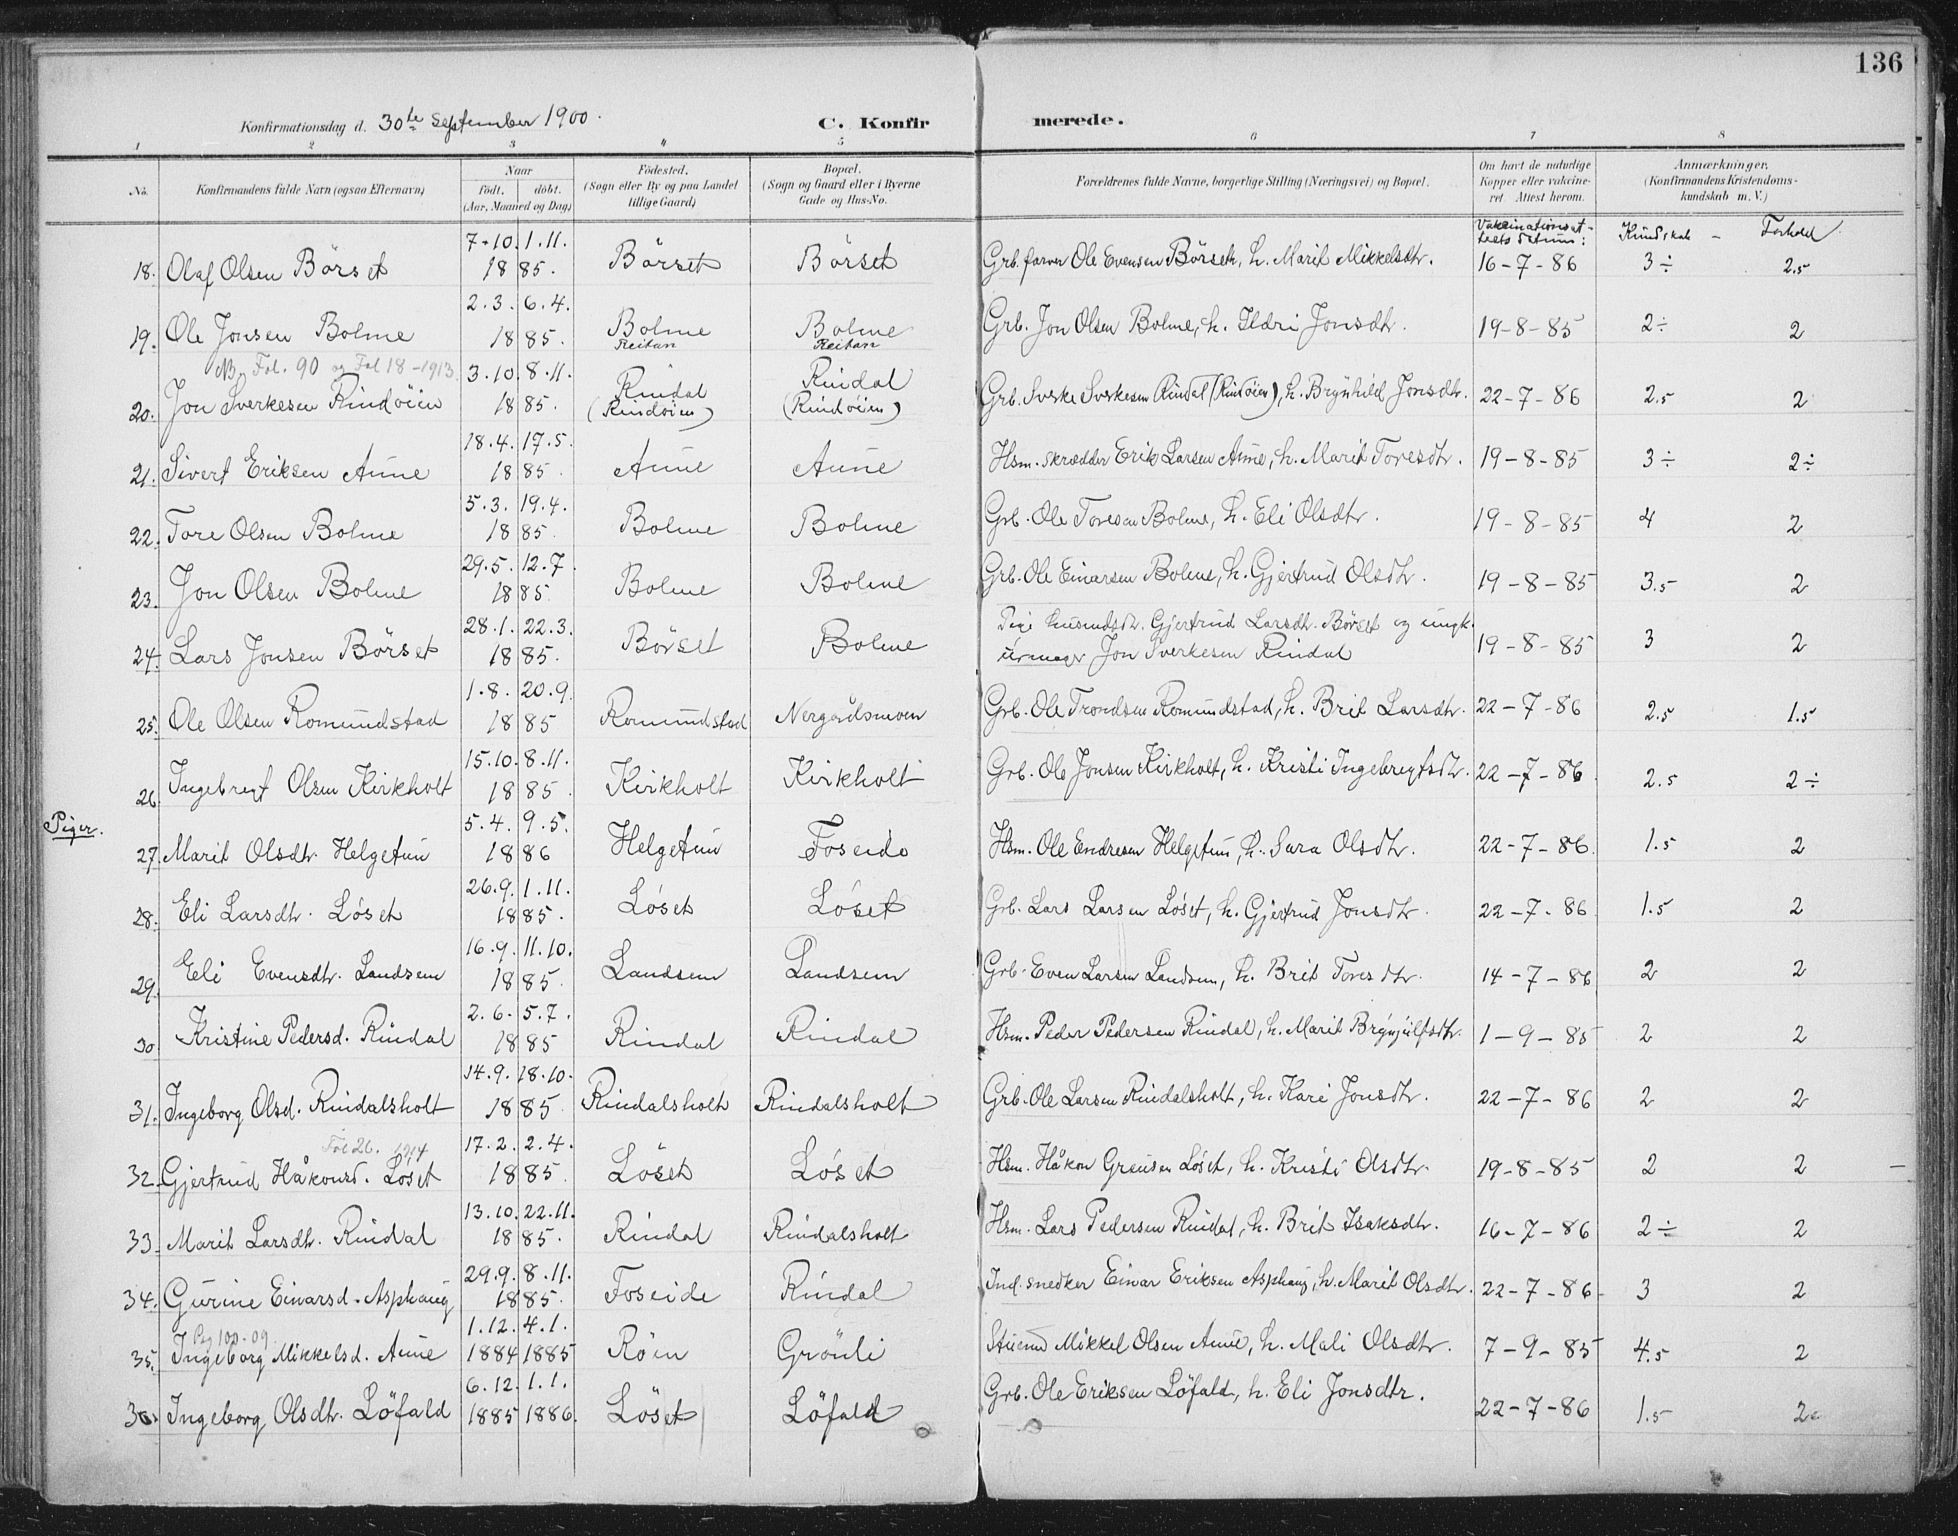 136
Konfirmationsdag d. 30te September 1900. C. Konfirmerede.
1 2 3 4 5 6 7 8
No. Konfirmandens fulde Navn (ogsaa Efternavn) Naar født, døbt. (Aar, Maaned og Dag) Fødested. (Sogn eller By og paa Landet tillige Gaard) Bopæl. (Sogn og Gaard eller i Byerne Gade og Hus-No. Forældrenes fulde Navne, borgerlige Stilling (Næringsvei) og Bopæl. Om havt de naturlige Kopper eller vakcineret. Attest herom. Anmærkninger. (Konfirmandens Kristendomskundskab m. V.)
Vakcinationsattests datum: Kundskab - Forhold
18. Olaf Olsen Börset 7-10. 1885 1.11. 85. Börset Börset Grb. farver Ole Evensen Börset, h. Marit Mikkelsdtr. 16-7-86 3÷ 2.5
19. Ole Jonsen Bolme 2.3. 6.4. 1885. Bolme Reitan Bolme Reitan Grb. Jon Olsen Bolme, h. Ildri Jonsdtr. 19-8-85 2÷ 2
NB. Fol. 90 og Fol 18-1913
20. Jon Sverkesen Rindöien 3.10. 8.11. 1885. Rindal (Rindöien) Rindal (Rindöien) Grb. Sverke Sverkesen Rindal (Rindöien), h. Brynhild Jonsdtr. 22-7-86 2.5 2
21. Sivert Eriksen Aune 18.4. 17.5. 1885. Aune Aune Hsm. skrædder Erik Larsen Aune, h. Marit Toresdtr. 19-8-85 3÷ 2÷
22. Tore Olsen Bolme 5.3. 19.4. 1885. Bolme Bolme Grb. Ole Toresen Bolme, h. Eli Olsdtr. 19-8-85 4 2
23. Jon Olsen Bolme 29.5. 12.7. 1885. Bolme Bolme Grb. Ole Einarsen Bolme, h. Gjertrud Olsdtr. 19-8-85 3.5 2
24. Lars Jonsen Börset 28.1. 22.3. 1885. Börset Bolme Pige husmdsdtr. Gjertrud Larsdtr. Börset og ungk. urmager Jon Sverkesen Rindal 19-8-85 3 2
25. Ole Olsen Romundstad 1.8. 20.9. 1885 Romundstad Nergårdsmoen Grb. Ole Trondsen Romundstad, h. Brit Larsdtr. 22-7-86 2.5 1.5
26. Ingebregt Olsen Kirkholt 15.10. 8.11. 1885. Kirkholt Kirkholt Grb. Ole Jonsen Kirkholt, h. Kristi Ingebregtsdtr. 22-7-86 2.5 2÷
Piger.
27. Marit Olsdtr. Helgetun 5.4. 9.5. 1886 Helgetun Foseide Hsm. Ole Endresen Helgetun, h. Sara Olsdtr. 22-7-86. 1.5 2
28. Eli Larsdtr. Löset 26.9. 1.11. 1885. Löset Löset Grb. Lars Larsen Löset, h. Gjertrud Jonsdtr. 22-7-86 1.5 2
29. Eli Evensdtr. Landsem 16.9. 11.10. 1885. Landsem Landsem Grb. Even Larsen Landsem, h. Brit Toresdtr. 14-7-86 2 2
30. Kristine Pedersd. Rindal 2.6. 5.7. 1885 Rindal Rindal Hsm. Peder Pedersen Rindal, h. Marit Brynjulfsdtr. 1-9-85 2 2
31. Ingeborg Olsd. Rindalsholt 14.9. 18.10. 1885. Rindalsholt Rindalsholt Grb. Ole Larsen Rindalsholt, h. Kari Jonsdtr. 22-7-86 2 2
Fol 26. 1914
32. Gjertrud Håkonsd. Löset 17.2. 2.4. 1885. Löset Löset Hsm. Håkon Löset, h. Kristi Olsdtr. 19-8-85 2 2 -
33. Marit Larsdtr. Rindal 13.10. 22.11. 1885. Rindal Rindalsholt Hsm. Lars Pedersen Rindal, h. Brit Isaksdtr. 16-7-86 2÷ 2
34. Gurine Einarsd. Asphaug 29.9. 8.11. 1885. Foseide Rindal Ind. snedker Einar Eriksen Asphaug, h. Marit Olsdtr. 22-7-86- 3 2
Pg 100-09
35. Ingeborg Mikkelsd. Aune 1.12. 4.1. 1884 1885 Röen Grönli Mikkel Olsen Aune, h. Mali Olsdtr. 7-9-85 4.5 2
36. Ingeborg Olsdtr. Löfald 6.12. 1.1. 1885 1886. Löset Löfald Grb. Ole Eriksen Löfald, h. Eli Jonsdtr. 22-7-86 1.5 2